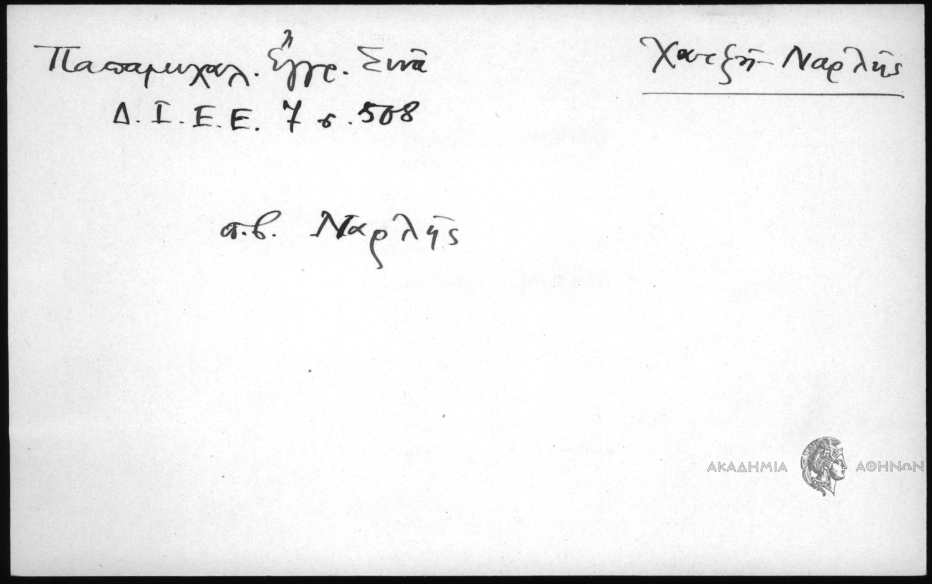 Παπαμιχαλ. Ἔγγρ. Σινᾶ
Χατζῆ-Ναρλῆς
Δ. Ι. Ε. Ε. 7 σ. 508
π.β. Ναρλῆς
ΑΚΑΔΗΜΙΑ ΑΘΗΝΩΝ